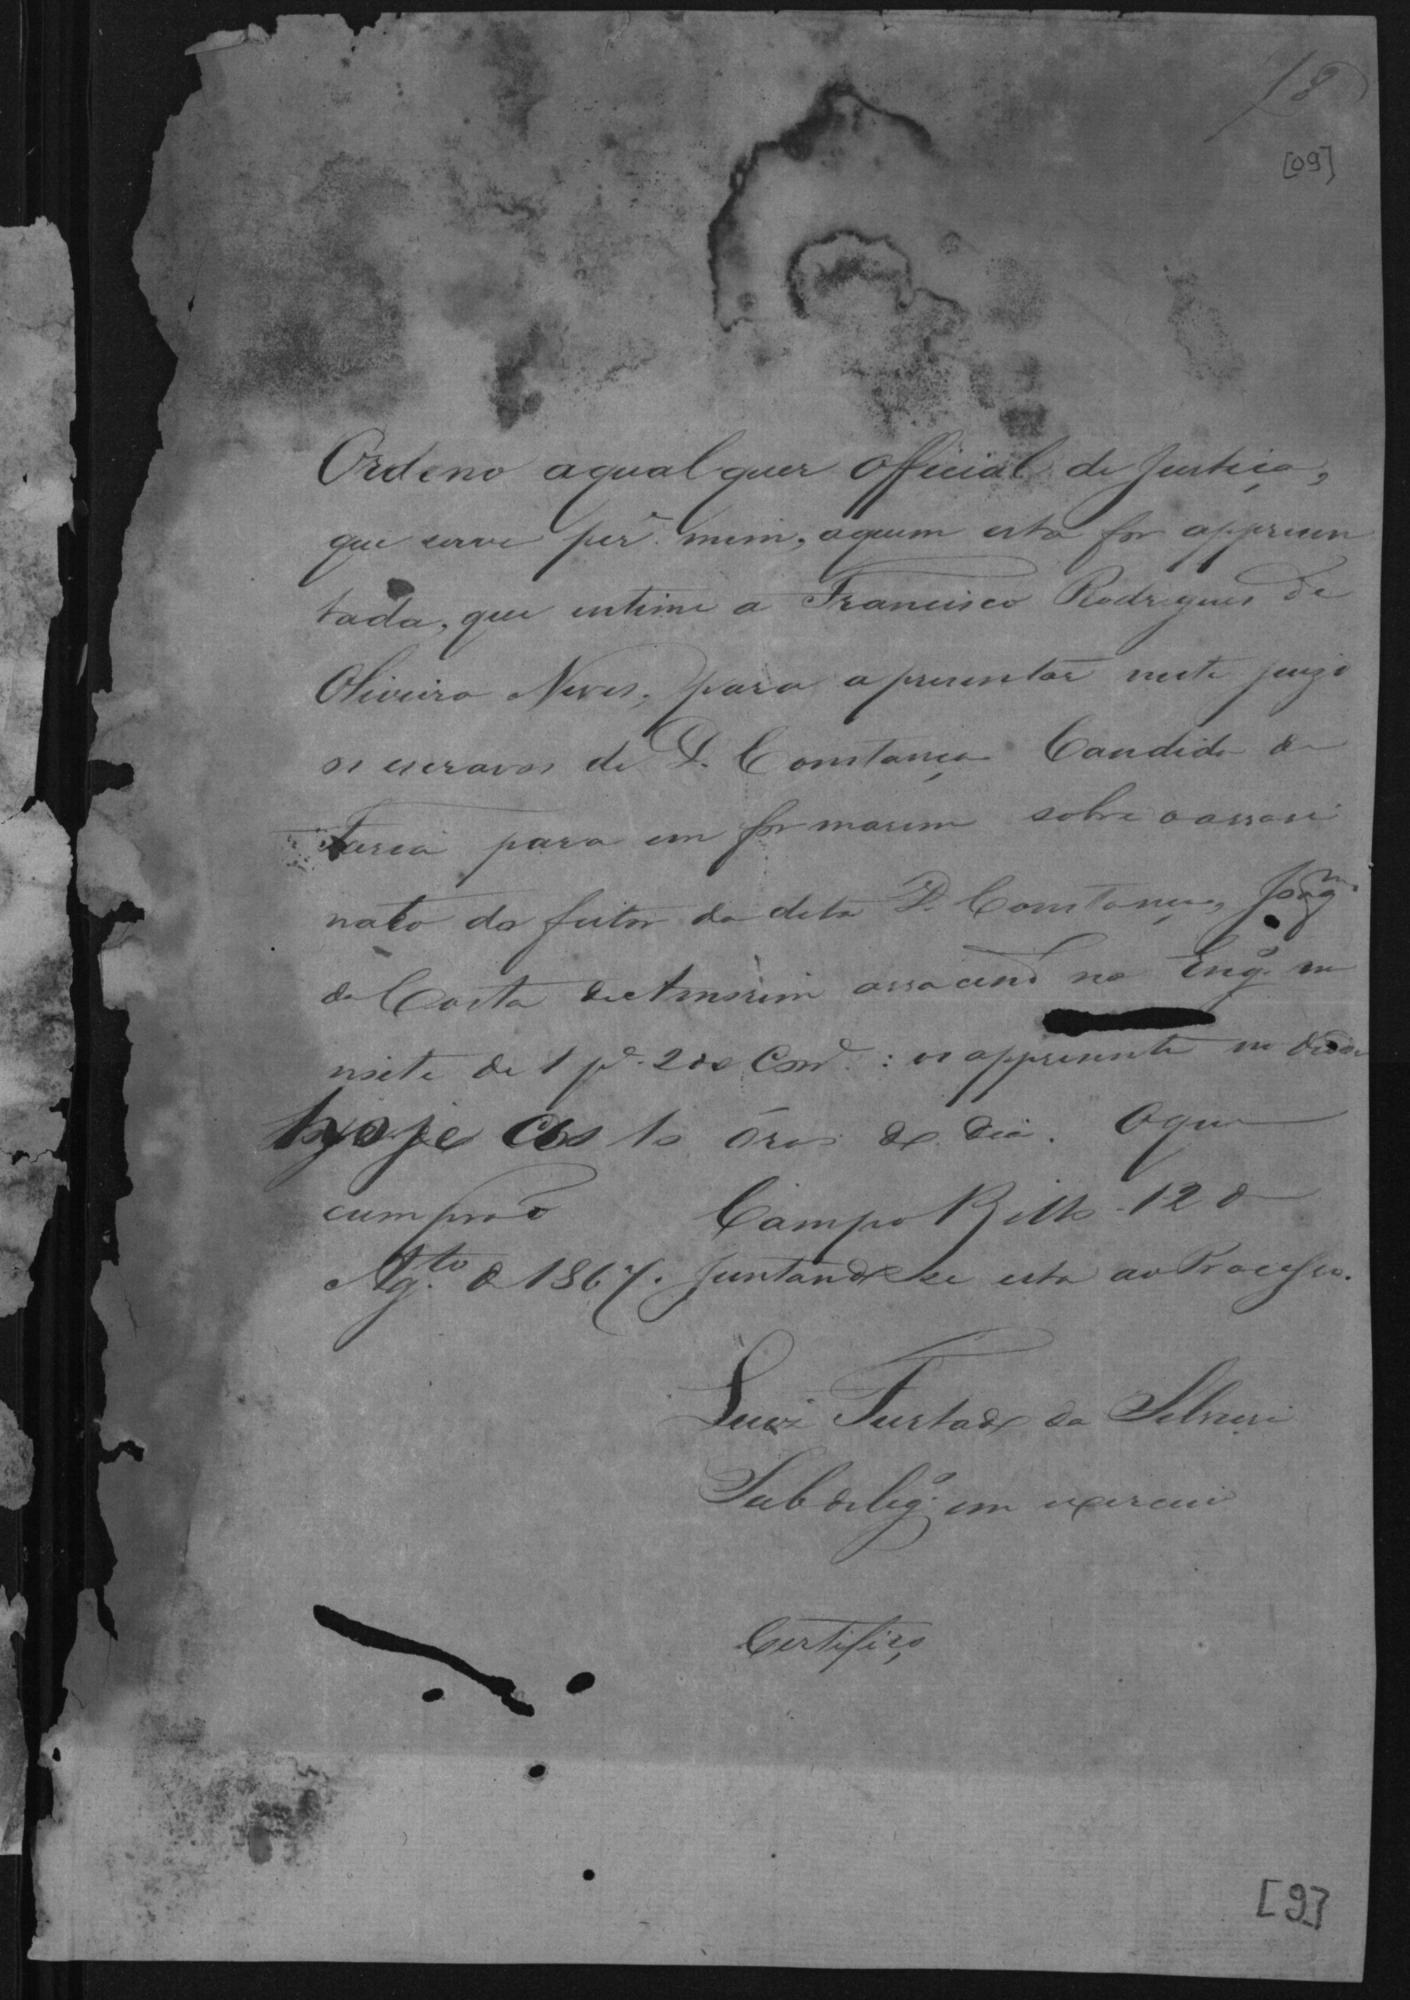 18
[09]
Ordeno aqual quer Official de Justiça,
que serve per.e mim, aquem esta for appresen
tada, que intime a Francisco Rodrigues de
Oliveira Neves, para apresentar neste juizo
os escravos de D. Constança Candida da
para em formarem sobre o assasi
nato do feitor da dita D. Constança, Joaq.m
da Costa de Amorim assacinado no Eng.o
noite de 1 p.a 2 do Corr.e : os appresente
hoje as 10 óras do dia. Oque
cumpra Campo Bello 12 d
Ag.to d 1867. Juntando se esta ao Processo.
Luiz Furtado da Silveira
Subdeleg.o em exercicio
Certifico,
[9]